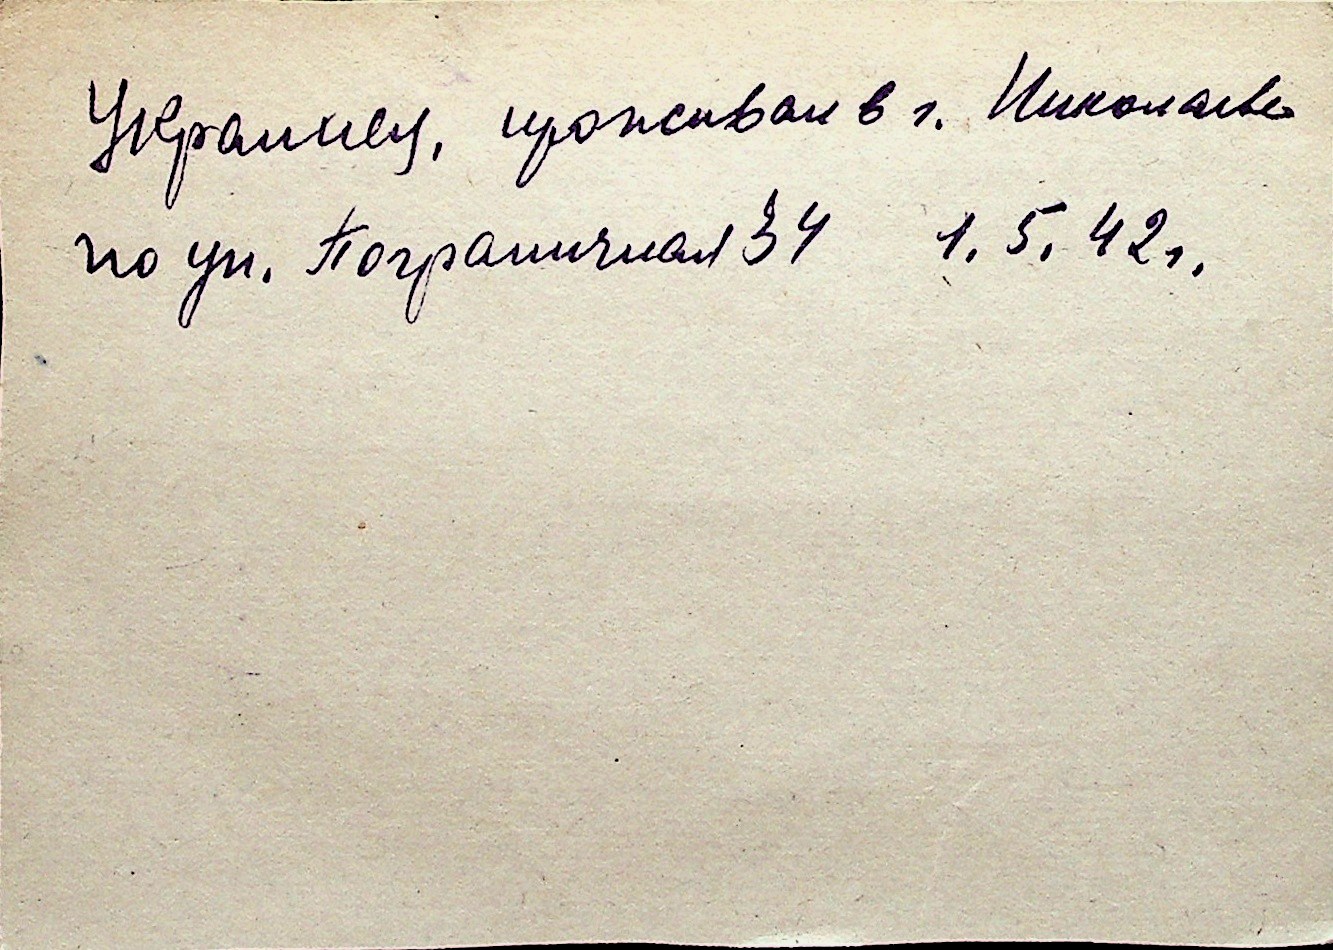 Украинец, проживал в г. Николаеве
по ул. Пограничная 34 1.5.42г.